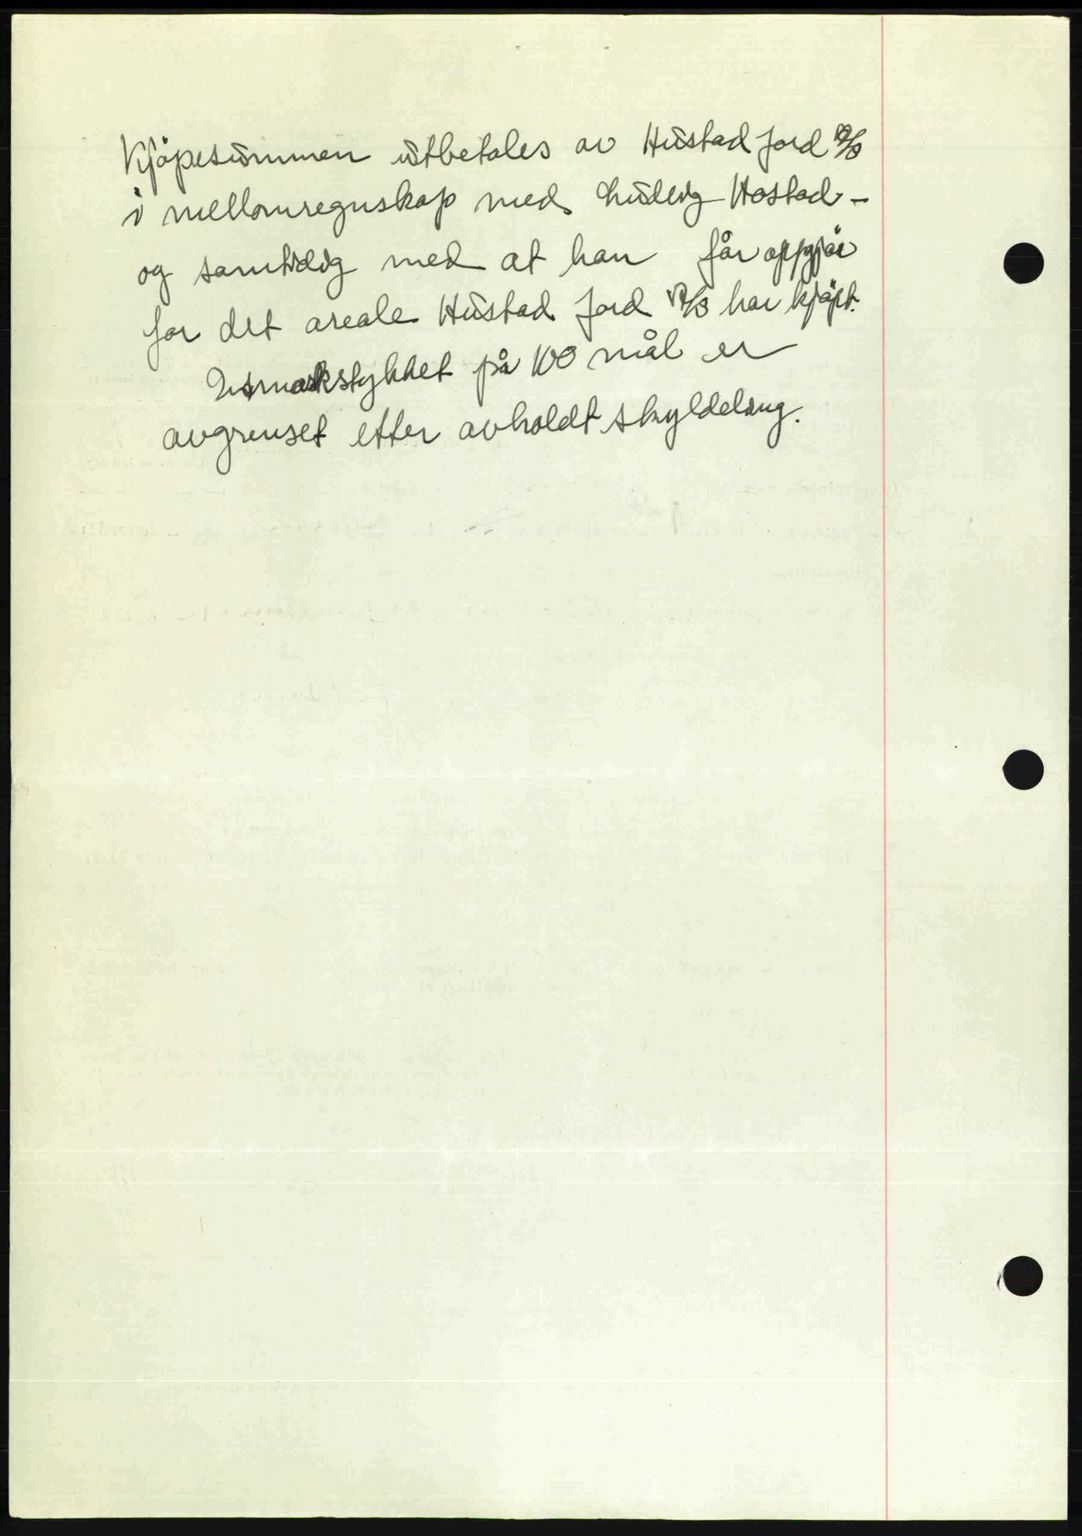 Kjöpesummen utbetales av Hustad Jord A/S
i mellomregnskap med Ludvig Hostad -
og samtidig med at han får oppgjör
for det areale Hustad Jord A/S har kjöpt.
Utmarkstykket på 100 mål er
avgrenset etter avholdt skyldeling.